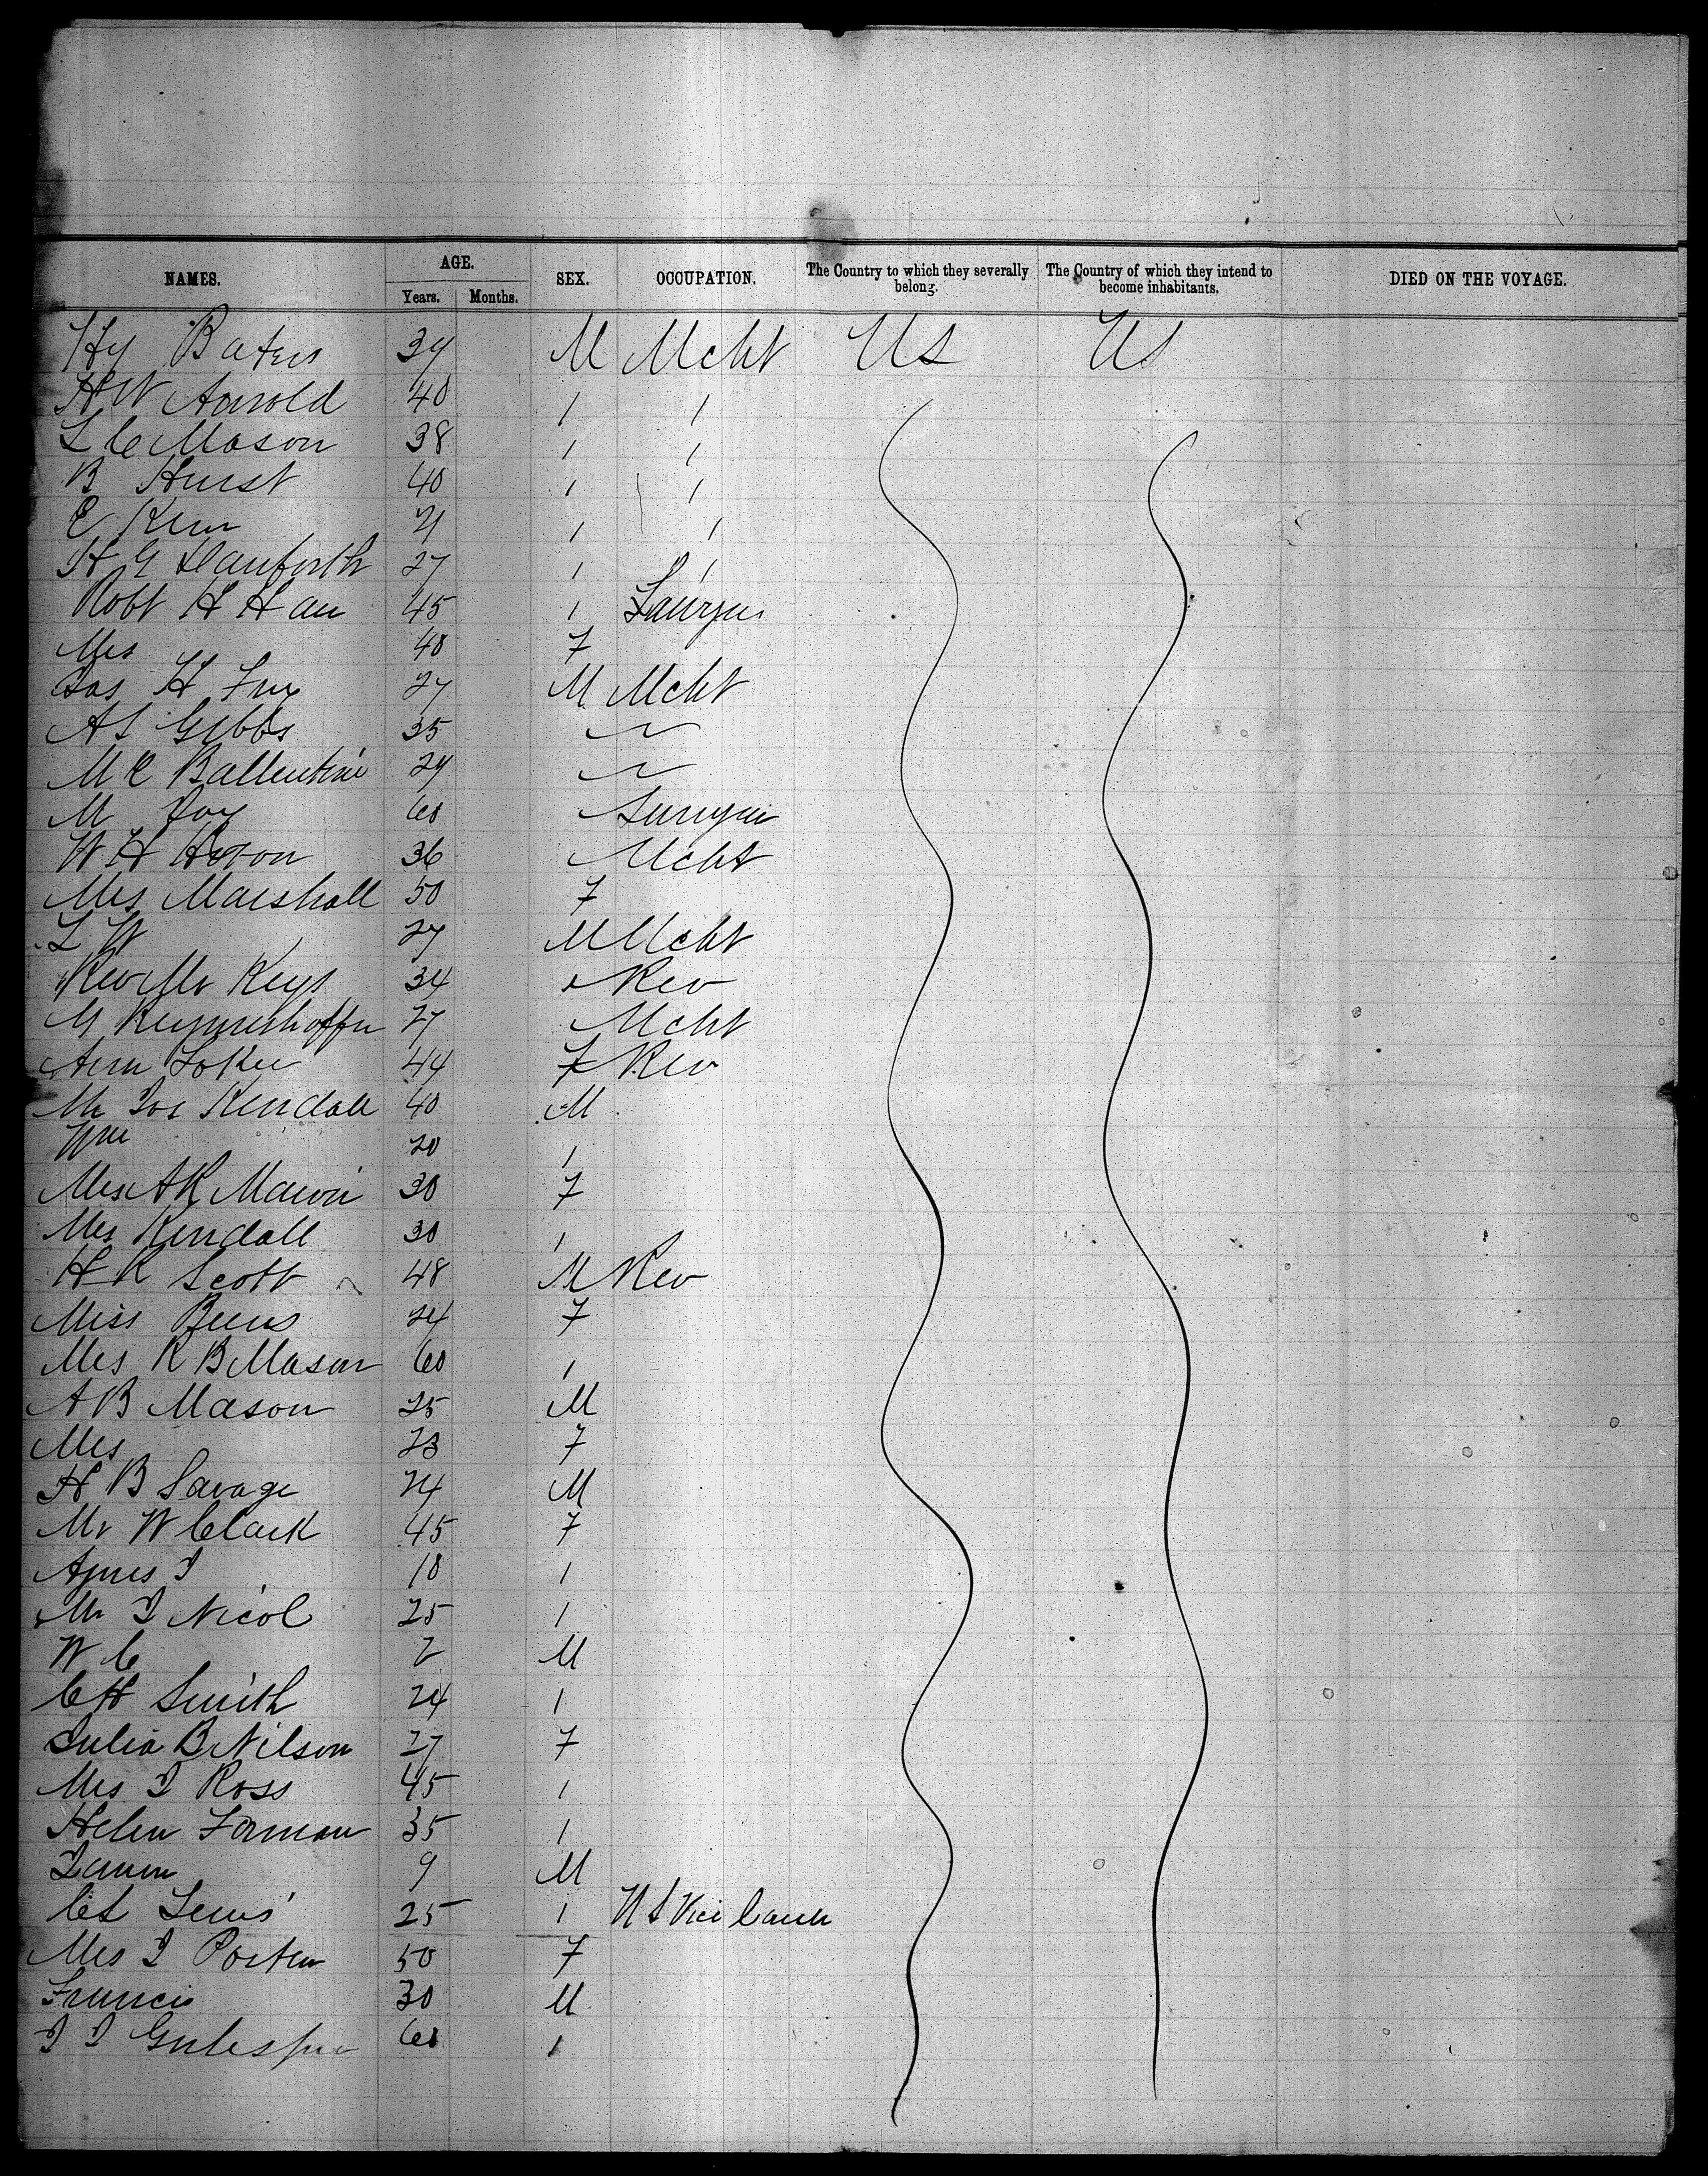 NAMES. AGE. SEX. OCCUPATION. The Country to which they severally belong. The Country of which they intend to become inhabitants. DIED ON THE VOYAGE.
Years. Months.
Hy 34 M Mcht US US
H W Arnold 40 / /
L C Mason 38 / /
B Hurst 40 / /
E 21 / /
H G Danforth 27 / /
Robt H 45 /
Mrs 40 F
Jas H 27 M Mcht
A S Gibbs 35
M C Ballentine 24
M 60
W H 36 Mcht
Mrs Marshall 50 F
L W 27 M Mcht
Rev Mr Keys 34 Rev
G 27 Mcht
Ann 44 F Rev
Mr Jos Kendall 40 M
Wm 20 /
Mrs A R 30 F
Mrs Kendall 30 /
H R Scott 48 M Rev
Miss 24 F
Mrs R B Mason 60 /
A B Mason 25 M
Mrs 23 F
H B Savage 24 M
Mr W Clark 45 F
Agnes J 18 /
Mr J Nicol 25 /
W C 2 M
C H Smith 24 /
Julia B Nilson 27 F
Mrs J Ross 45 /
Helen Forman 35 /
9 M
Lewis 25 / U S Vice
Mrs J Porter 50 F
Francis 30 M
J J 60 /